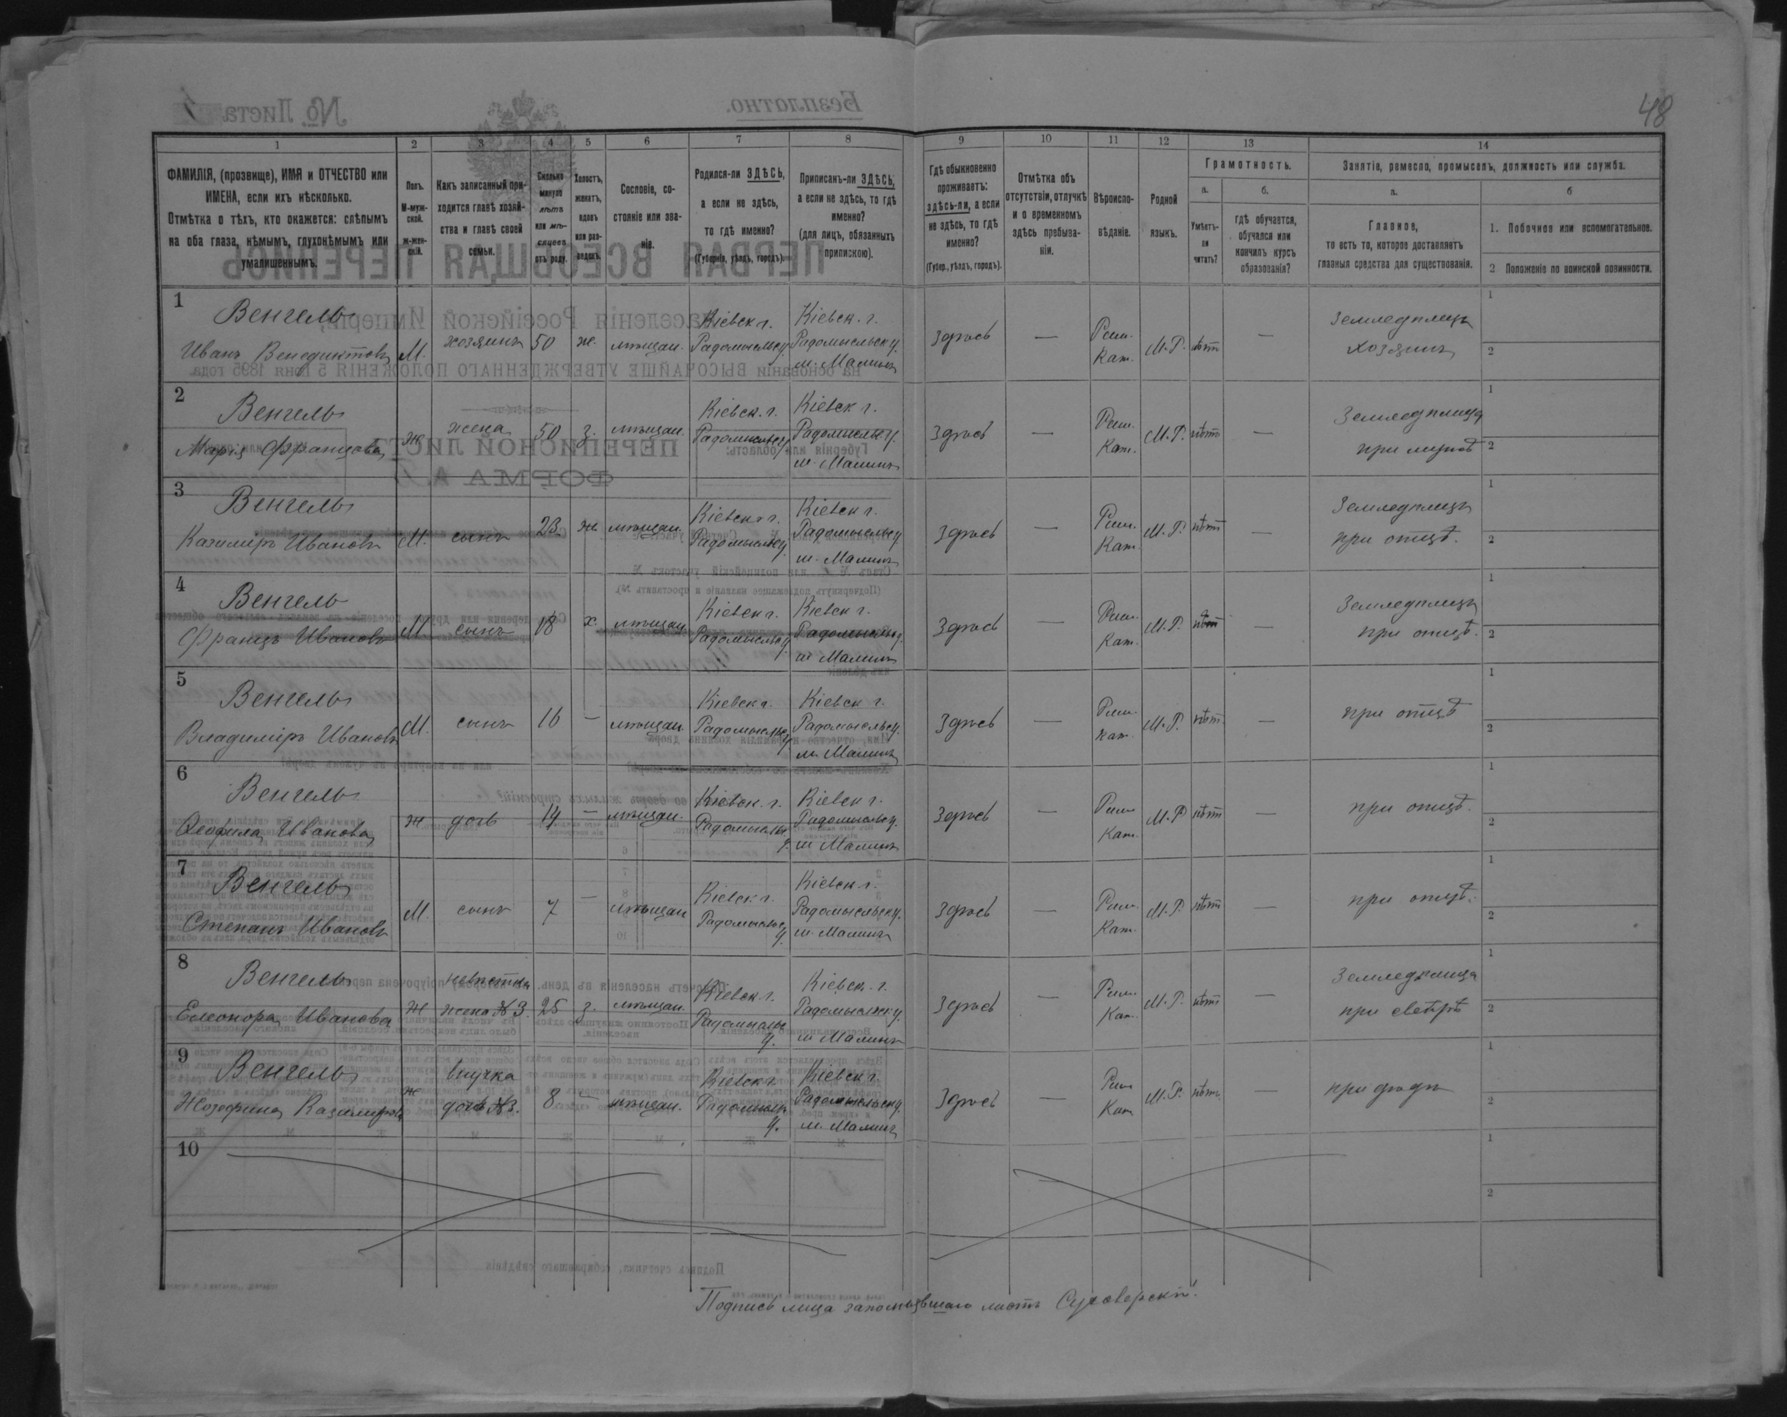 48
1 2 3 4 5 6 7 8 9 10 11 12 13 14
ФАМИЛІЯ, (прозвище), ИМЯ и ОТЧЕСТВО или ИМЕНА, если ихъ нѣсколько.
Отмѣтка о тѣхъ, кто окажется: слѣпымъ на оба глаза, нѣмымъ, глухонѣмымъ или умалишеннымъ.
Полъ.
М-муж-ской.
ж-жен-скій.
Какъ записанный при-ходится главѣ хозяй-ства и главѣ своей семьи.
Сколько минуло лѣтъ или мѣ-сяцевъ отъ роду.
Холостъ, женатъ, вдовъ или раз-веденъ.
Сословіе, со-стояніе или зва-ніе.
Родился-ли ЗДѢСЬ, а если не здѣсь, то гдѣ именно?
(Губернія, уѣздъ, городъ).
Приписанъ-ли ЗДѢСЬ, а если не здѣсь, то гдѣ именно?
(для лицъ, обязанныхъ припискою).
Гдѣ обыкновенно проживаетъ: здѣсь-ли, а если не здѣсь, то гдѣ именно?
(Губер., уѣздъ, городъ).
Отмѣтка объ отсутствіи, отлучкѣ и о временномъ здѣсь пребыва-ніи.
Вѣроиспо-вѣданіе.
Родной языкъ.
Грамотность.
а.
Умѣетъ-ли читать?
б.
гдѣ обучается, обучался или кончилъ курсъ образованія?
Занятіе, ремесло, промыселъ, должность или служба.
а.
Главное,
то есть то, которое доставляетъ главныя средства для существованія.
б
1. Побочное или вспомогательное.
2 Положеніе по воинской повинности.
1 Венгель Иванъ Венедиктовъ М. хозяинъ 50 ж. мѣщан. Кіевск г. Радомысльск у. Кіевск. г. Радомысльск у. м. Малинъ здѣсь — Рим. Кат. М.Р. нѣтъ — Земледѣлецъ хозяинъ 1 2
2 Венгель Марія Францова ж жена 50 з. мѣщан. Кіевск. г. Радомысльск у. Кіевск г. Радомысльск у. м. Малинъ здѣсь — Рим. Кат. М.Р. нѣтъ — Земледѣлица при мужѣ 1 2
3 Венгель Казимиръ Ивановъ М. сынъ 23 ж мѣщан. Кіевск г. Радомысльск у. Кіевск г. Радомысльск у. м. Малинъ здѣсь — Рим. Кат. М.Р. нѣтъ — Земледѣлецъ при отцѣ. 1 2
4 Венгель Францъ Ивановъ М. сынъ 18 х мѣщан Кіевск г. Радомысльск у. Кіевск г. Радомысльск у. м Малинъ здѣсь — Рим. Кат. М.Р. нѣтъ — Земледѣлецъ при отцѣ. 1 2
5 Венгель Владиміръ Ивановъ М. сынъ 16 — мѣщан Кіевск г Радомысльск у Кіевск г. Радомысльск у. м. Малинъ здѣсь — Рим. Кат. М.Р. нѣтъ — при отцѣ 1 2
6 Венгель Ѳеофила Иванова ж дочь 14 — мѣщан. Кіевск. г. Радомысльск у. Кіевск г. Радомысльск у. м Малинъ здѣсь — Рим Кат. М.Р нѣтъ — при отцѣ. 1 2
7 Венгель Степанъ Ивановъ М. сынъ 7 — мѣщан Кіевск г. Радомысльск у. Кіевск г. Радомысльск у. м. Малинъ здѣсь — Рим. Кат. М.Р. нѣтъ — при отцѣ. 1 2
8 Венгель Елеонора Иванова ж невѣстка жена №3. 25 з. мѣщан. Кіевск г. Радомысльск у. Кіевск. г. Радомысльск у. м Малинъ здѣсь — Рим. Кат. М.Р. нѣтъ — Земледѣлица при свекрѣ 1 2
9 Венгель Жозефина Казимирова ж внучка дочь №3. 8 — мѣщан. Кіевск г. Радомысльск у. Кіевск г. Радомысльск у. м. Малинъ здѣсь — Рим Кат М.Р. нѣтъ — при дѣдѣ 1 2
10 1 2
Подпись лица заполнявшаго листъ Суховерскій